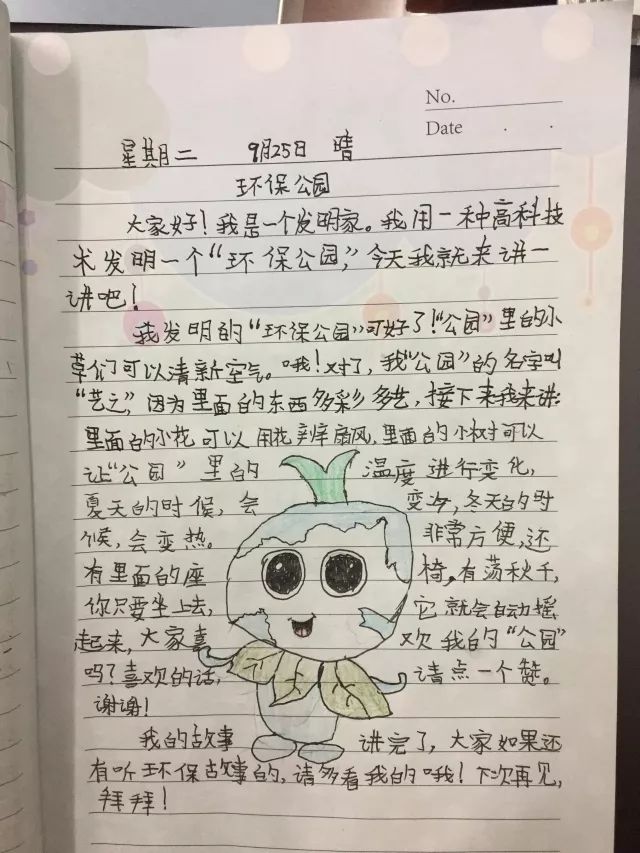 No.
Date
星期二 9月25日 晴
环保公园
大家好！我是一个发明家。我用一种高科技
术发明一个“环保公园”，今天我就来讲一
讲吧！
我发明的“环保公园”可好了！“公园”里的小
草们可以清新空气。哦！对了，我“公园”的名字叫
“艺之”，因为里面的东西多彩多艺，接下来我来讲：
里面的小花可以用花辨扇风，里面的小树可以
让“公园”里的温度进行变化，
夏天的时候，会变冷，冬天的时
候，会变热。非常方便，还
有里面的座椅，有荡秋千，
你只要坐上去，它就会自动摇
起来，大家喜欢我的“公园”
吗？喜欢的话，请点一个赞。
谢谢！
我的故事讲完了，大家如果还
有听环保故事的，请多看我的哦！下次再见，
拜拜！